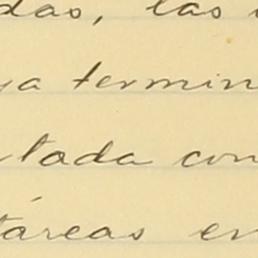 das, las
ya termin
tada con
táreas en